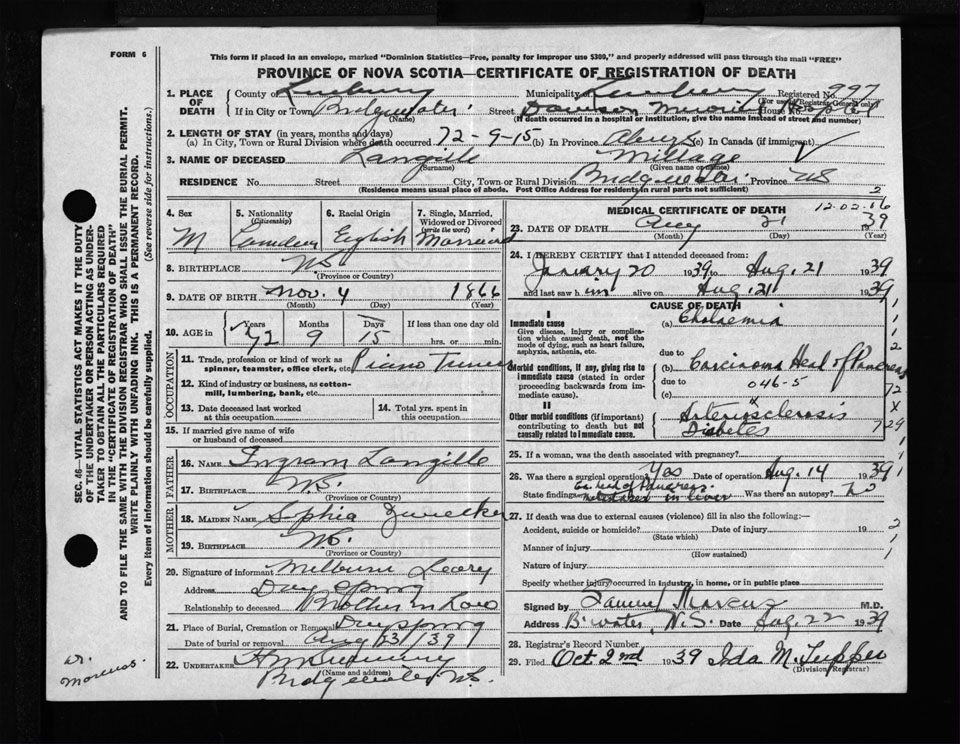 FORM 6
This form if placed in an envelope, marked "Dominion Statistics—Free, penalty for improper use $300," and properly addressed will pass through the mail "FREE"
PROVINCE OF NOVA SCOTIA—CERTIFICATE OF REGISTRATION OF DEATH
1. PLACE OF DEATH County of Lunenburg Municipality of Lunenburg Registered No. 997
(For use of Registrar General only)
If in City or Town Bridgewater (Name) Street Dawson Memorial House No. Hospital
(If death occurred in a hospital or institution, give the name instead of street and number)
2. LENGTH OF STAY (in years, months and days)
(a) In City, Town or Rural Division where death occurred 72-9-15 (b) In Province Always (c) In Canada (if immigrant)
3. NAME OF DECEASED Langille (Surname) Millage (Given name or names)
RESIDENCE No. Street City, Town or Rural Division Bridgewater Province NS
(Residence means usual place of abode. Post Office Address for residents in rural parts not sufficient) 2
4. Sex M
5. Nationality (Citizenship) Canadian
6. Racial Origin English
7. Single, Married, Widowed or Divorced (write the word) Married
8. BIRTHPLACE N.S. (Province or Country)
9. DATE OF BIRTH Nov. (Month) 4 (Day) 1866 (Year)
10. AGE in Years 72 Months 9 Days 15 If less than one day old hrs. or min.
OCCUPATION
11. Trade, profession or kind of work as spinner, teamster, office clerk, etc. Piano Tuner
12. Kind of industry or business, as cotton-mill, lumbering, bank, etc.
13. Date deceased last worked at this occupation
14. Total yrs. spent in this occupation
15. If married give name of wife or husband of deceased
FATHER
16. NAME Ingram Langille
17. BIRTHPLACE N.S. (Province or Country)
MOTHER
18. MAIDEN NAME Sophia Zwicker
19. BIRTHPLACE N.S. (Province or Country)
20. Signature of informant Melbourne Leary
Address Dayspring
Relationship to deceased Brother in Law
21. Place of Burial, Cremation or Removal Dayspring
Date of burial or removal Aug 23/39
22. UNDERTAKER
(Name and address)
Bridgewater N.S.
MEDICAL CERTIFICATE OF DEATH 12-02-16
23. DATE OF DEATH Aug (Month) (Day) 1939 (Year)
24. I HEREBY CERTIFY that I attended deceased from:
January 20 1939 to Aug. 21 1939
and last saw him alive on Aug. 21 1939
CAUSE OF DEATH
I
Immediate cause (a) Cholaemia
Give disease, injury or complication which caused death, not the mode of dying, such as heart failure, asphyxia, asthenia, etc.
due to
Morbid conditions, if any, giving rise to immediate cause (stated in order proceeding backwards from immediate).
(b) Carcinoma Head of Pancreas
due to 046-5
(c)
II
Other morbid conditions (if important) contributing to death but not causally related to immediate cause.
Arteriosclerosis
Diabetes
25. If a woman, was the death associated with pregnancy?
26. Was there a surgical operation? Yes Date of operation Aug. 14 1939
State findings Ca head of Pancreas metastases in liver Was there an autopsy? No
27. If death was due to external causes (violence) fill in also the following:—
Accident, suicide or homicide? (State which) Date of injury 19
Manner of injury (How sustained)
Nature of injury
Specify whether injury occurred in industry, in home, or in public place
Signed by Samuel Marcus M.D.
Address B'water, N.S. Date Aug 22 1939
28. Registrar's Record Number
29. Filed Oct 2nd 1939 Ida M. Tupper
(Division Registrar)
SEC. 46—VITAL STATISTICS ACT MAKES IT THE DUTY OF THE UNDERTAKER OR PERSON ACTING AS UNDERTAKER TO OBTAIN ALL THE PARTICULARS REQUIRED IN THE "CERTIFICATE OF REGISTRATION OF DEATH"
AND TO FILE THE SAME WITH THE DIVISION REGISTRAR WHO SHALL ISSUE THE BURIAL PERMIT.
WRITE PLAINLY WITH UNFADING INK. THIS IS A PERMANENT RECORD.
Every item of information should be carefully supplied. (See reverse side for instructions.)
Dr. Marcus.